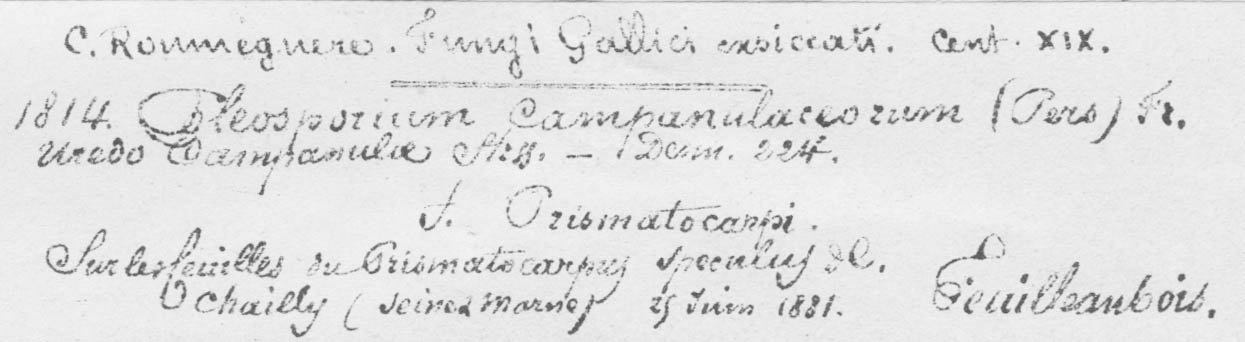 C. Roumeguere. Fungi Gallici exsiccati. Cent. XIX.
1814. Coleosporium Campanulaceorum (Pers) Fr.
Uredo Campanulæ — Desm. 224.
f. Prismatocarpi.
Sur les feuilles du Prismatocarpus speculus
Chailly (Seine & Marne) 25 Juin 1881. Feuilleaubois.